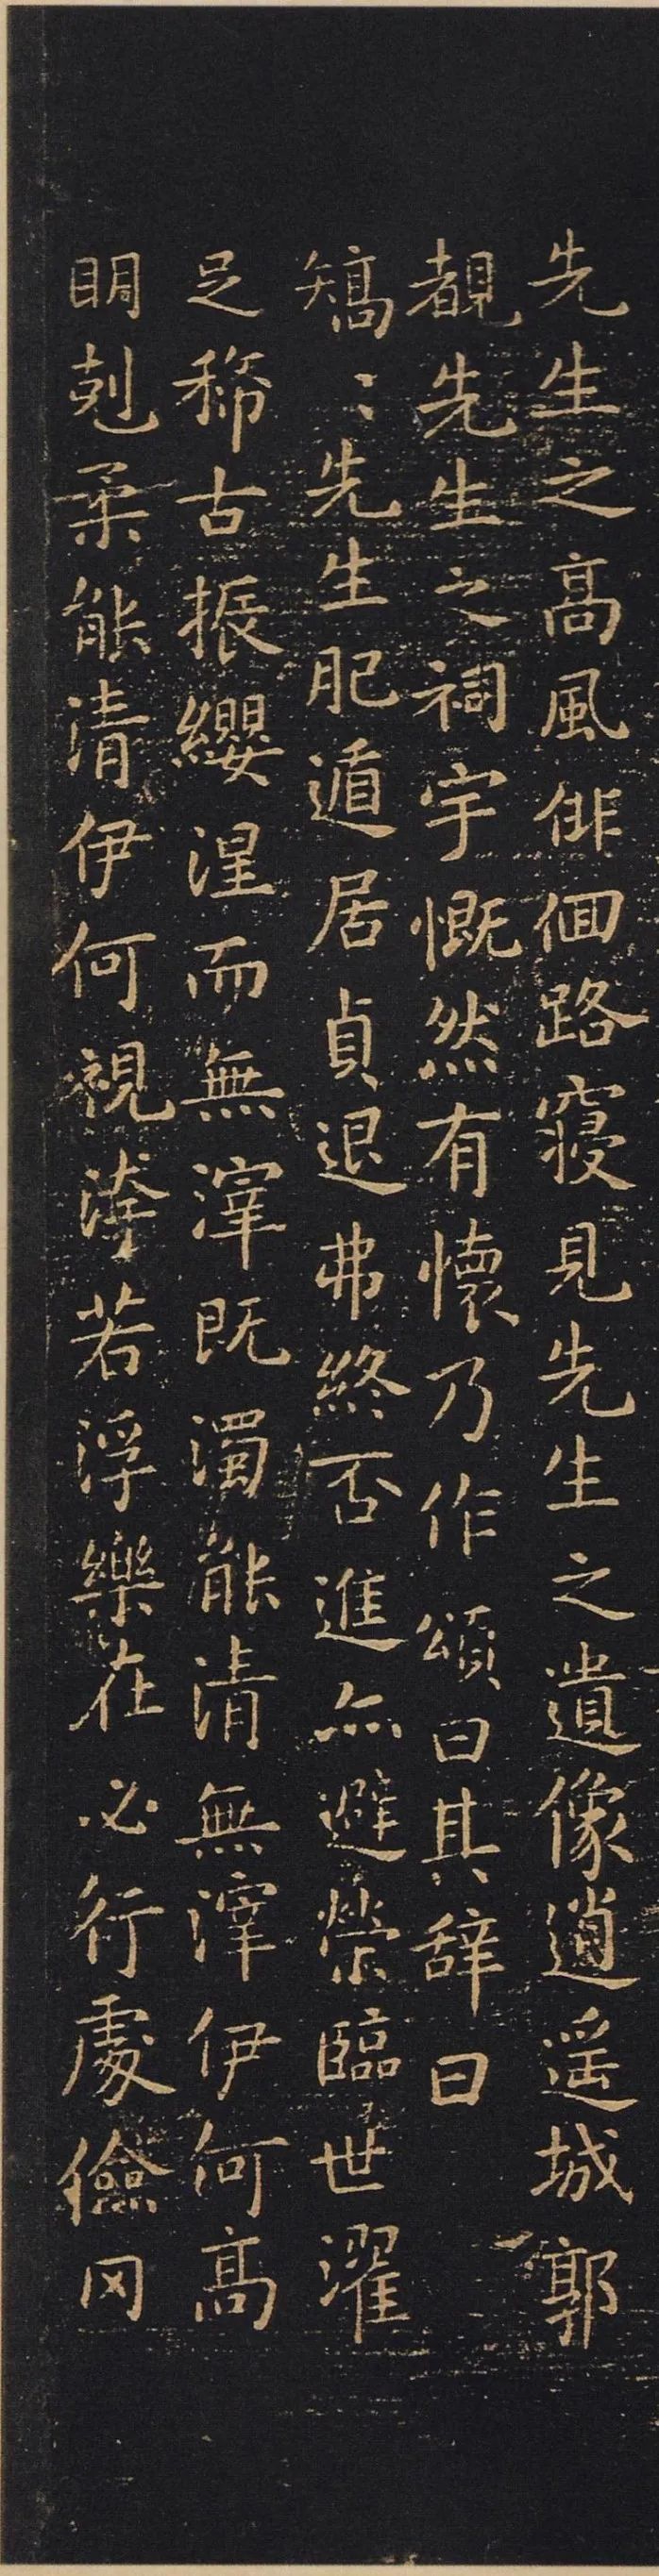 先生之高風俳佪路寑見先生之遺像逍遥城郭
覩先生之祠宇慨然有懷乃作頌曰其辞曰
矯〻先生肥遁居貞退弗終否進亦避榮臨世濯
足稀古振纓涅而無滓既濁能清無滓伊何高
明剋柔能清伊何視汙若浮樂在必行處儉罔